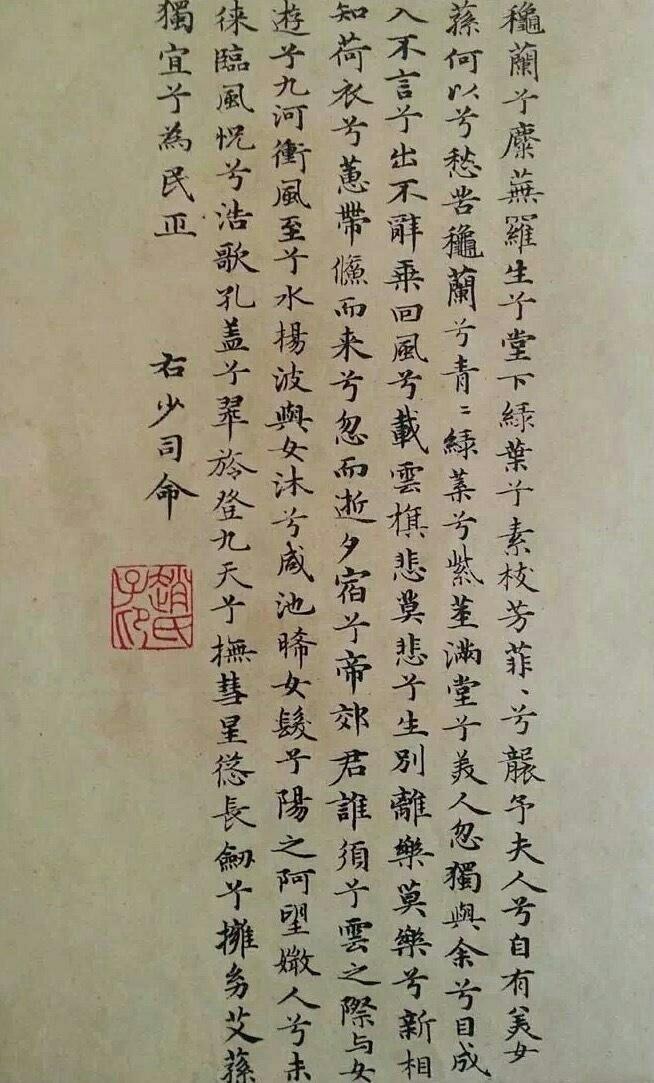 穐蘭兮麋蕪羅生兮堂下綠葉兮素枝芳菲〻兮襲予夫人兮自有美女
蓀何以兮愁苦穐蘭兮青〻綠葉兮紫莖滿堂兮美人忽獨與余兮目成
入不言兮出不辭乘回風兮載雲旗悲莫悲兮生別離樂莫樂兮新相
知荷衣兮蕙帶儵而来兮忽而逝夕宿兮帝郊君誰須兮雲之際与女
遊兮九河衝風至兮水揚波與女沐兮咸池晞女髮兮陽之阿望媺人兮未
徠臨風怳兮浩歌孔盖兮翠旍登九天兮撫彗星慫長劒兮擁㓜艾蓀
獨宜兮為民正
右少司命
趙氏子印